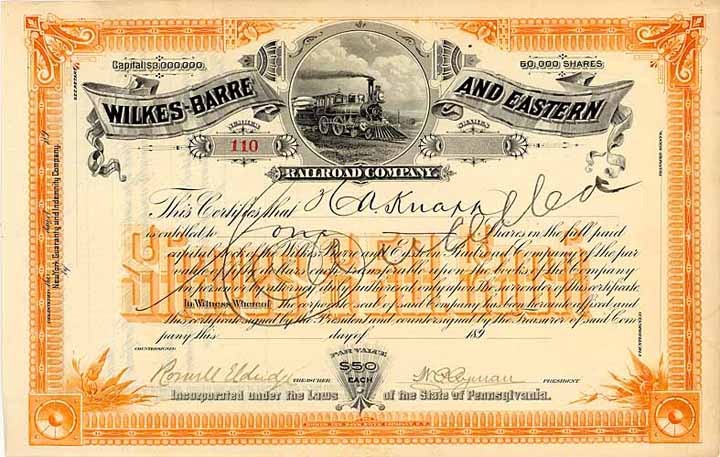 Capital $3,000,000.
50,000 SHARES
WILKES-BARRE AND EASTERN
NUMBER
110
SHARES
RAILROAD COMPANY.
This Certifies that H A. Knapp
is entitled to One Shares in the full paid
capital stock of the Wilkes-Barre and Eastern Railroad Company of the par
value of fifty dollars each transferable upon the books of the Company
in person or by attorney duly authorized only upon the surrender of this certificate.
In Witness Whereof The corporate seal of said Company has been hereunto affixed and
this certificate signed by the President and countersigned by the Treasurer of said Com
pany this day of 189
Cancelled
COUNTERSIGNED
PAR VALUE
$50
EACH
TREASURER
PRESIDENT
Incorporated under the Laws of the State of Pennsylvania.
New York Guaranty and Indemnity Company.
SECRETARY.
TRANSFER AGENTS.
COUNTERSIGNED